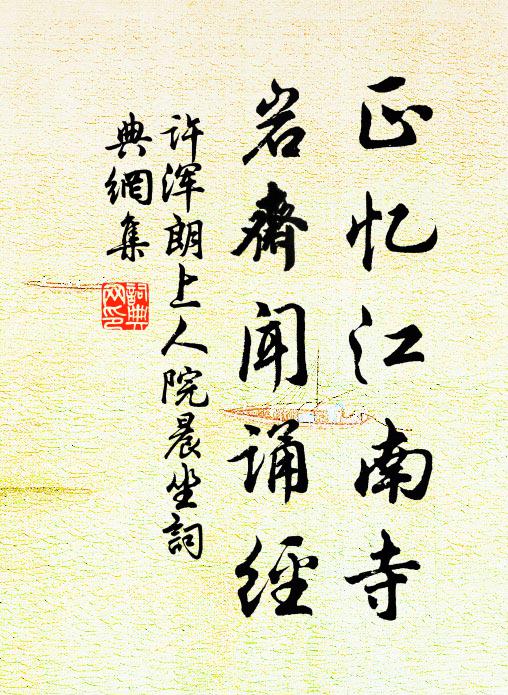 正忆江南寺
岩斋闻诵经
许浑朗上人院晨坐詞
典網集
詞典网印